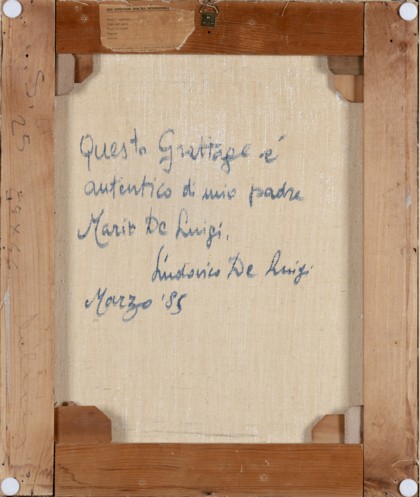 Questo Grattage è
autentico di mio padre
Mario De Luigi.
Ludovico De Luigi
Marzo '85